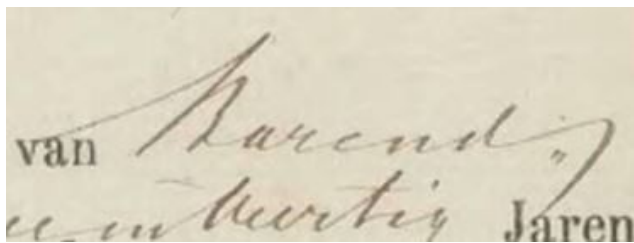 van Barend
en veertig Jaren